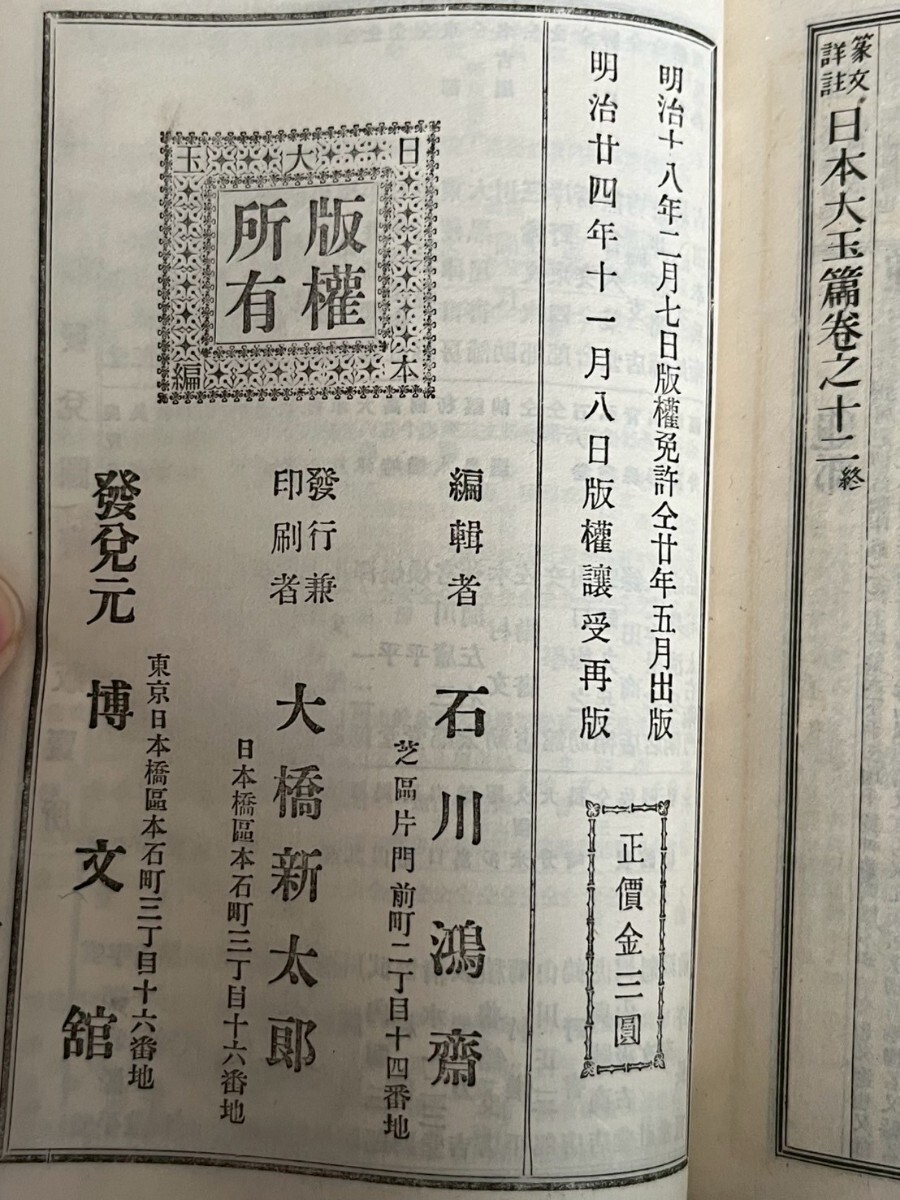 篆文
詳註
日本大玉篇卷之十二終
明治十八年二月七日版權免許仝廿年五月出版
明治廿四年十一月八日版權讓受再版
正價金三圓
日本大玉編
版權
所有
編輯者
石川鴻齋
芝區片門前町二丁目十四番地
發行兼
印刷者
大橋新太郎
日本橋區本石町三丁目十六番地
東京日本橋區本石町三丁目十六番地
發兌元
博文舘